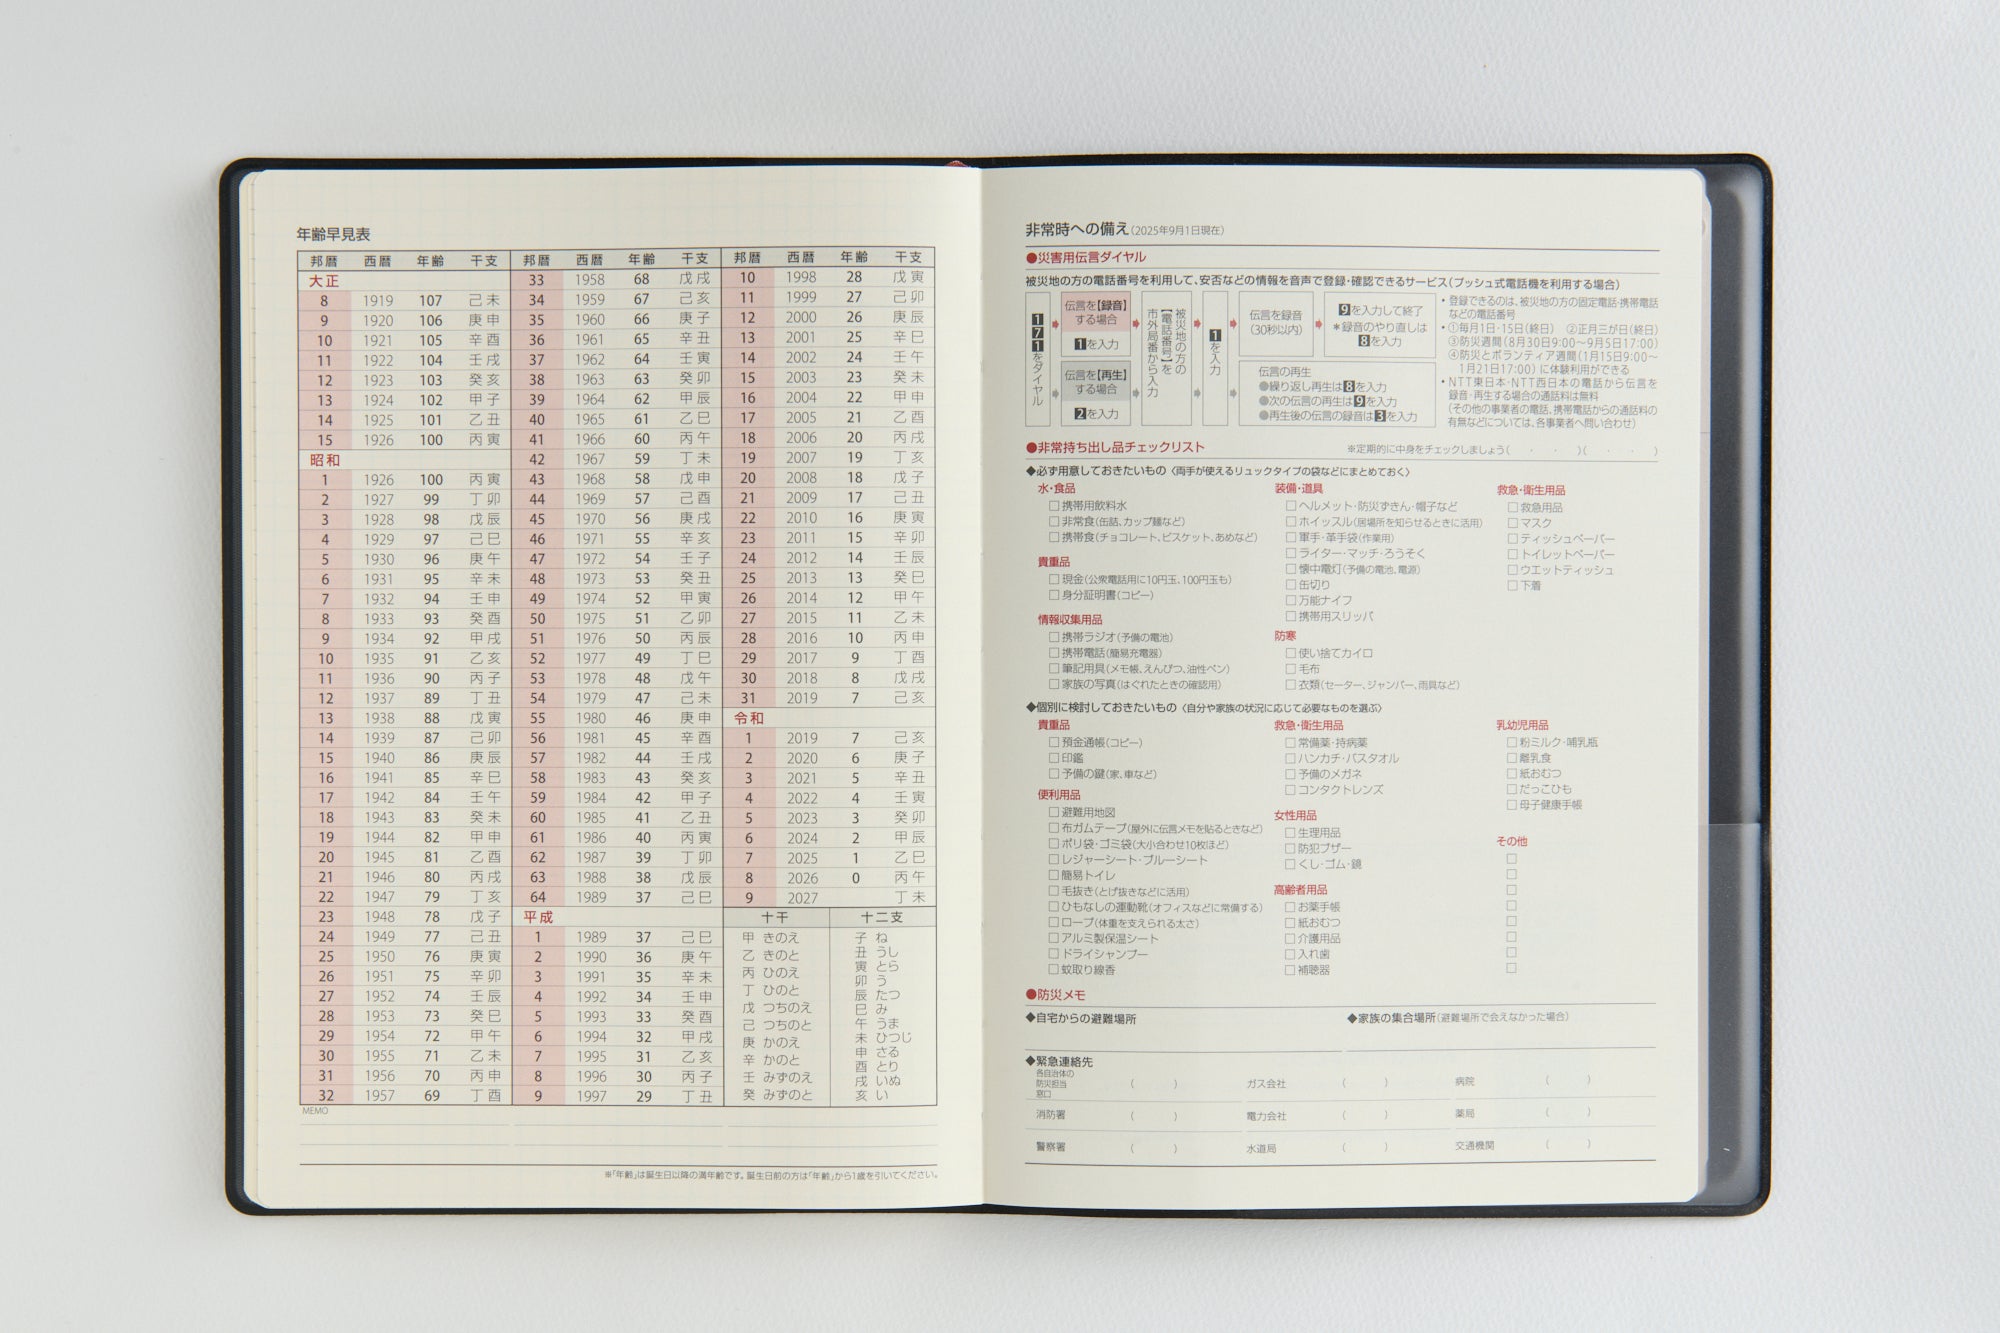 年齢早見表
邦暦 西暦 年齢 干支
大正
8 1919 107 己未
9 1920 106 庚申
10 1921 105 辛酉
11 1922 104 壬戌
12 1923 103 癸亥
13 1924 102 甲子
14 1925 101 乙丑
15 1926 100 丙寅
昭和
1 1926 100 丙寅
2 1927 99 丁卯
3 1928 98 戊辰
4 1929 97 己巳
5 1930 96 庚午
6 1931 95 辛未
7 1932 94 壬申
8 1933 93 癸酉
9 1934 92 甲戌
10 1935 91 乙亥
11 1936 90 丙子
12 1937 89 丁丑
13 1938 88 戊寅
14 1939 87 己卯
15 1940 86 庚辰
16 1941 85 辛巳
17 1942 84 壬午
18 1943 83 癸未
19 1944 82 甲申
20 1945 81 乙酉
21 1946 80 丙戌
22 1947 79 丁亥
23 1948 78 戊子
24 1949 77 己丑
25 1950 76 庚寅
26 1951 75 辛卯
27 1952 74 壬辰
28 1953 73 癸巳
29 1954 72 甲午
30 1955 71 乙未
31 1956 70 丙申
32 1957 69 丁酉
邦暦 西暦 年齢 干支
33 1958 68 戊戌
34 1959 67 己亥
35 1960 66 庚子
36 1961 65 辛丑
37 1962 64 壬寅
38 1963 63 癸卯
39 1964 62 甲辰
40 1965 61 乙巳
41 1966 60 丙午
42 1967 59 丁未
43 1968 58 戊申
44 1969 57 己酉
45 1970 56 庚戌
46 1971 55 辛亥
47 1972 54 壬子
48 1973 53 癸丑
49 1974 52 甲寅
50 1975 51 乙卯
51 1976 50 丙辰
52 1977 49 丁巳
53 1978 48 戊午
54 1979 47 己未
55 1980 46 庚申
56 1981 45 辛酉
57 1982 44 壬戌
58 1983 43 癸亥
59 1984 42 甲子
60 1985 41 乙丑
61 1986 40 丙寅
62 1987 39 丁卯
63 1988 38 戊辰
64 1989 37 己巳
平成
1 1989 37 己巳
2 1990 36 庚午
3 1991 35 辛未
4 1992 34 壬申
5 1993 33 癸酉
6 1994 32 甲戌
7 1995 31 乙亥
8 1996 30 丙子
9 1997 29 丁丑
邦暦 西暦 年齢 干支
10 1998 28 戊寅
11 1999 27 己卯
12 2000 26 庚辰
13 2001 25 辛巳
14 2002 24 壬午
15 2003 23 癸未
16 2004 22 甲申
17 2005 21 乙酉
18 2006 20 丙戌
19 2007 19 丁亥
20 2008 18 戊子
21 2009 17 己丑
22 2010 16 庚寅
23 2011 15 辛卯
24 2012 14 壬辰
25 2013 13 癸巳
26 2014 12 甲午
27 2015 11 乙未
28 2016 10 丙申
29 2017 9 丁酉
30 2018 8 戊戌
31 2019 7 己亥
令和
1 2019 7 己亥
2 2020 6 庚子
3 2021 5 辛丑
4 2022 4 壬寅
5 2023 3 癸卯
6 2024 2 甲辰
7 2025 1 乙巳
8 2026 0 丙午
9 2027 丁未
十干
甲 きのえ
乙 きのと
丙 ひのえ
丁 ひのと
戊 つちのえ
己 つちのと
庚 かのえ
辛 かのと
壬 みずのえ
癸 みずのと
十二支
子 ね
丑 うし
寅 とら
卯 う
辰 たつ
巳 み
午 うま
未 ひつじ
申 さる
酉 とり
戌 いぬ
亥 い
MEMO
※「年齢」は誕生日以降の満年齢です。誕生日前の方は「年齢」から1歳を引いてください。
非常時への備え(2025年9月1日現在)
●災害用伝言ダイヤル
被災地の方の電話番号を利用して、安否などの情報を音声で登録・確認できるサービス(プッシュ式電話機を利用する場合)
171をダイヤル
伝言を【録音】
する場合
1を入力
伝言を【再生】
する場合
2を入力
被災地の方の
【電話番号】を
市外局番から入力
1を入力
伝言を録音
(30秒以内)
9を入力して終了
*録音のやり直しは
8を入力
伝言の再生
●繰り返し再生は8を入力
●次の伝言の再生は9を入力
●再生後の伝言の録音は3を入力
・登録できるのは、被災地の方の固定電話・携帯電話
などの電話番号
・①毎月1日・15日(終日) ②正月三が日(終日)
③防災週間(8月30日9:00〜9月5日17:00)
④防災とボランティア週間(1月15日9:00〜
1月21日17:00)に体験利用ができる
・NTT東日本・NTT西日本の電話から伝言を
録音・再生する場合の通話料は無料
(その他の事業者の電話、携帯電話からの通話料の
有無などについては、各事業者へ問い合わせ)
●非常持ち出し品チェックリスト
※定期的に中身をチェックしましょう( ・ ・ )( ・ ・ )
◆必ず用意しておきたいもの〈両手が使えるリュックタイプの袋などにまとめておく〉
水・食品
□携帯用飲料水
□非常食(缶詰、カップ麺など)
□携帯食(チョコレート、ビスケット、あめなど)
貴重品
□現金(公衆電話用に10円玉、100円玉も)
□身分証明書(コピー)
情報収集用品
□携帯ラジオ(予備の電池)
□携帯電話(簡易充電器)
□筆記用具(メモ帳、えんぴつ、油性ペン)
□家族の写真(はぐれたときの確認用)
装備・道具
□ヘルメット・防災ずきん・帽子など
□ホイッスル(居場所を知らせるときに活用)
□軍手・革手袋(作業用)
□ライター・マッチ・ろうそく
□懐中電灯(予備の電池、電源)
□缶切り
□万能ナイフ
□携帯用スリッパ
防寒
□使い捨てカイロ
□毛布
□衣類(セーター、ジャンパー、雨具など)
救急・衛生用品
□救急用品
□マスク
□ティッシュペーパー
□トイレットペーパー
□ウエットティッシュ
□下着
◆個別に検討しておきたいもの〈自分や家族の状況に応じて必要なものを選ぶ〉
貴重品
□預金通帳(コピー)
□印鑑
□予備の鍵(家、車など)
便利用品
□避難用地図
□布ガムテープ(屋外に伝言メモを貼るときなど)
□ポリ袋・ゴミ袋(大小合わせ10枚ほど)
□レジャーシート・ブルーシート
□簡易トイレ
□毛抜き(とげ抜きなどに活用)
□ひもなしの運動靴(オフィスなどに常備する)
□ロープ(体重を支えられる太さ)
□アルミ製保温シート
□ドライシャンプー
□蚊取り線香
救急・衛生用品
□常備薬・持病薬
□ハンカチ・バスタオル
□予備のメガネ
□コンタクトレンズ
女性用品
□生理用品
□防犯ブザー
□くし・ゴム・鏡
高齢者用品
□お薬手帳
□紙おむつ
□介護用品
□入れ歯
□補聴器
乳幼児用品
□粉ミルク・哺乳瓶
□離乳食
□紙おむつ
□だっこひも
□母子健康手帳
その他
□
□
□
□
□
□
□
□
●防災メモ
◆自宅からの避難場所
◆家族の集合場所(避難場所で会えなかった場合)
◆緊急連絡先
各自治体の
防災担当
窓口 ( )
ガス会社 ( )
病院 ( )
消防署 ( )
電力会社 ( )
薬局 ( )
警察署 ( )
水道局 ( )
交通機関 ( )